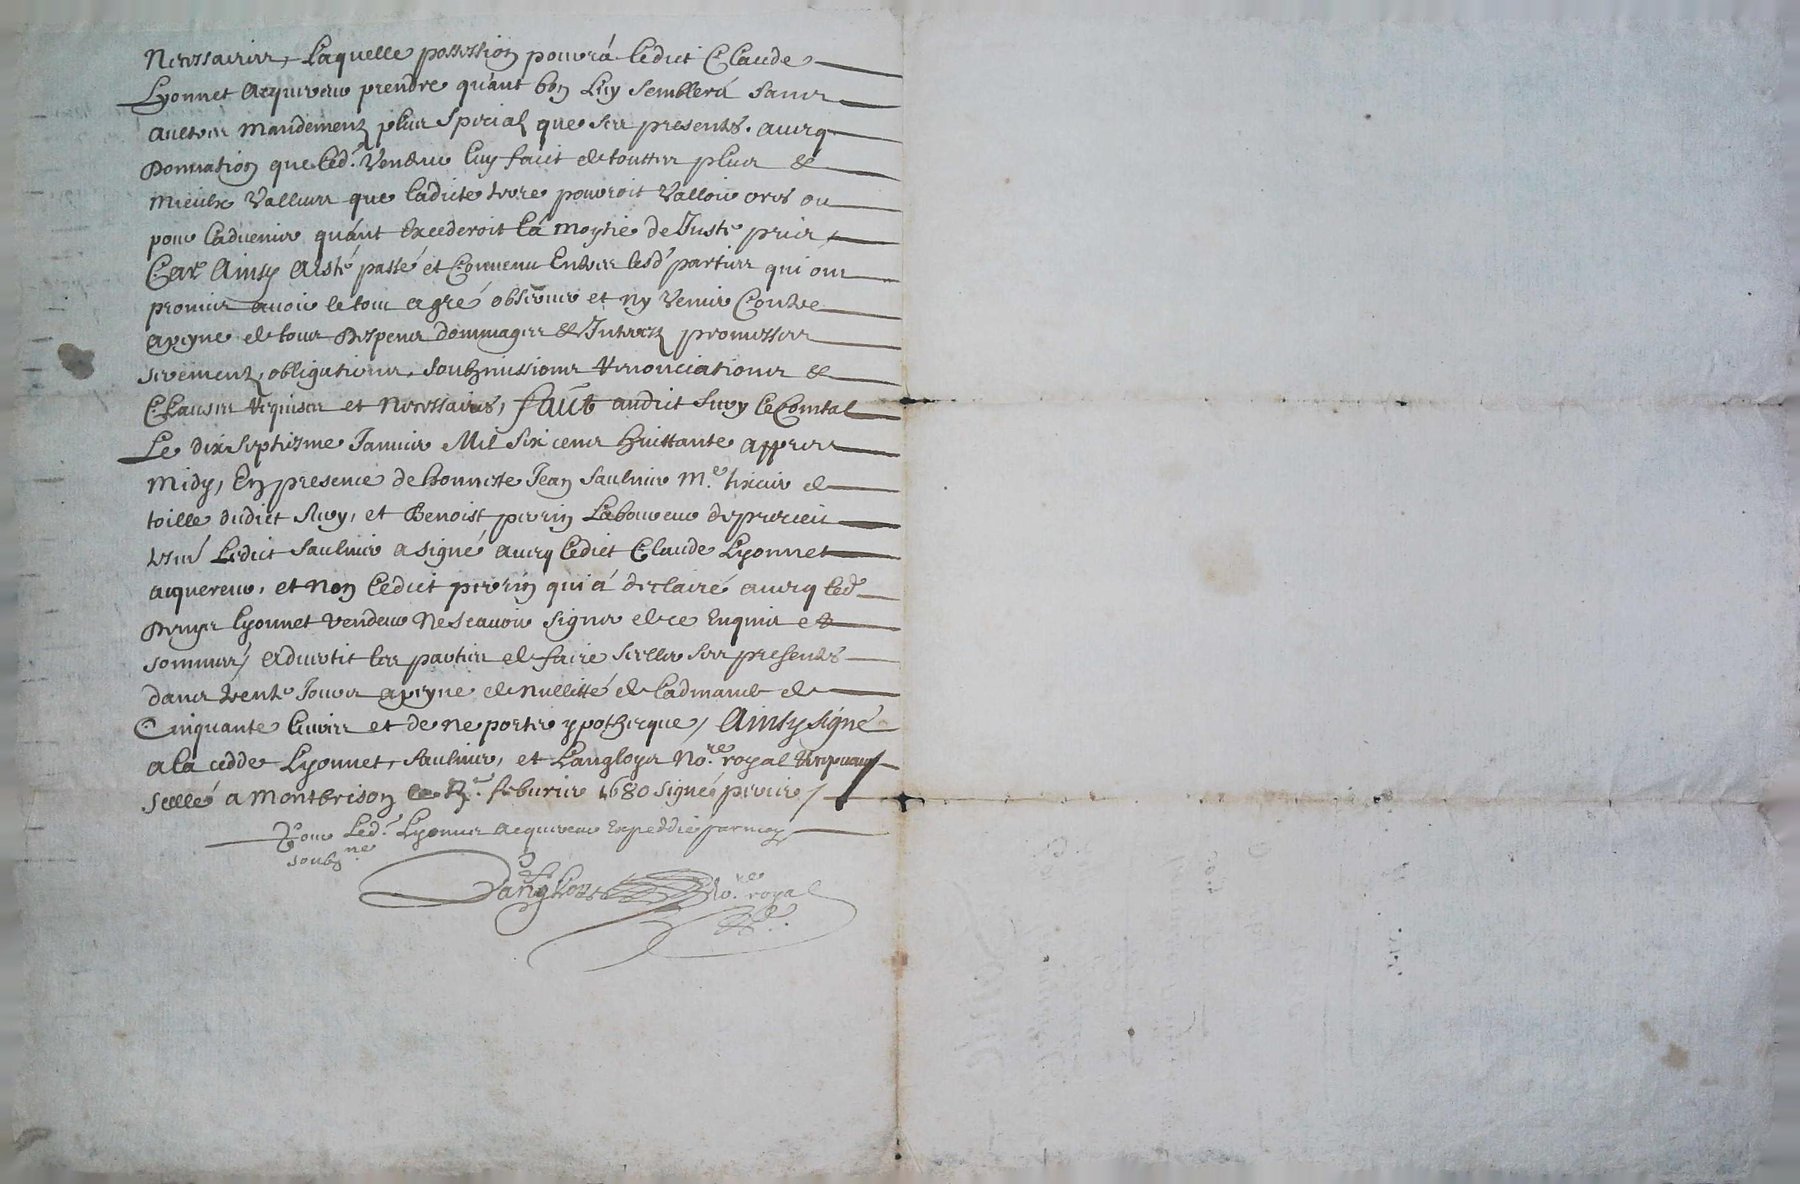 necessaires, Laquelle possession pourrá Ledict Claude
Lyonnet acquereur prendre quánt bon Luy semblerá sans
aultres mandement plus special que ses presentes. avecq
Donnation que led.t Vendeur luy faict de touttes plus &
mieulx Vallues que ladicte terre pourroit Valloir ores ou
pour ladvenir quánt excederoit lá moytié de Juste prix,
Car Ainsy á esté passé et Convenu Entre lesd parties qui ont
promis avoir le tout agré observer et ny Venir Contre
apeyne de tous Despens dommages & Interestz promesses
serementz, obligations, soubzmissions renonciations &
Clauses requises et necessaires, faict audict Sury Le Comtal
Le dix septiesme Janvier Mil six cens huittante appres
midy, En presence de honneste Jean Saulnier M.e tixier de
toille dudict Sury, et Benoist perrin Laboureur de
Ledict Saulnier a signé avecq Ledict Claude Lyonnet
acquereur, et Non Ledict perrin qui á declairé avecq Led
Denys Lyonnet vendeur ne scavoir signer de ce Enquis et
sommés, advertit les parties de faire seeller ses presentes
dans trente Jours apeyne de nullitté de Ladmande de
Cinquante Livres et de ne porter ypotheque, Ainsy signé
a la cedde Lyonnet, Saulnier, et Langloys No.re royal
Seellé a montbrison febvrier 1680 signé perrier
Pour Led.t Lyonnet acquereur Expeddié par moy
soubz.né
Langlois No.re royal